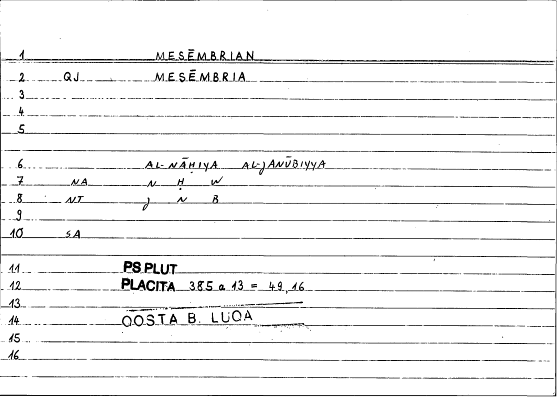 1 MESĒMBRIAN
2 QJ MESĒMBRIA
3
4
5
6 AL-NĀḤIYA AL-JANŪBIYYA
7 NA N Ḥ W
8 NT J N B
9
10 SA
11 PS PLUT
12 PLACITA 385 a 13 = 49,16
13
14 QOSTA B. LUQA
15
16